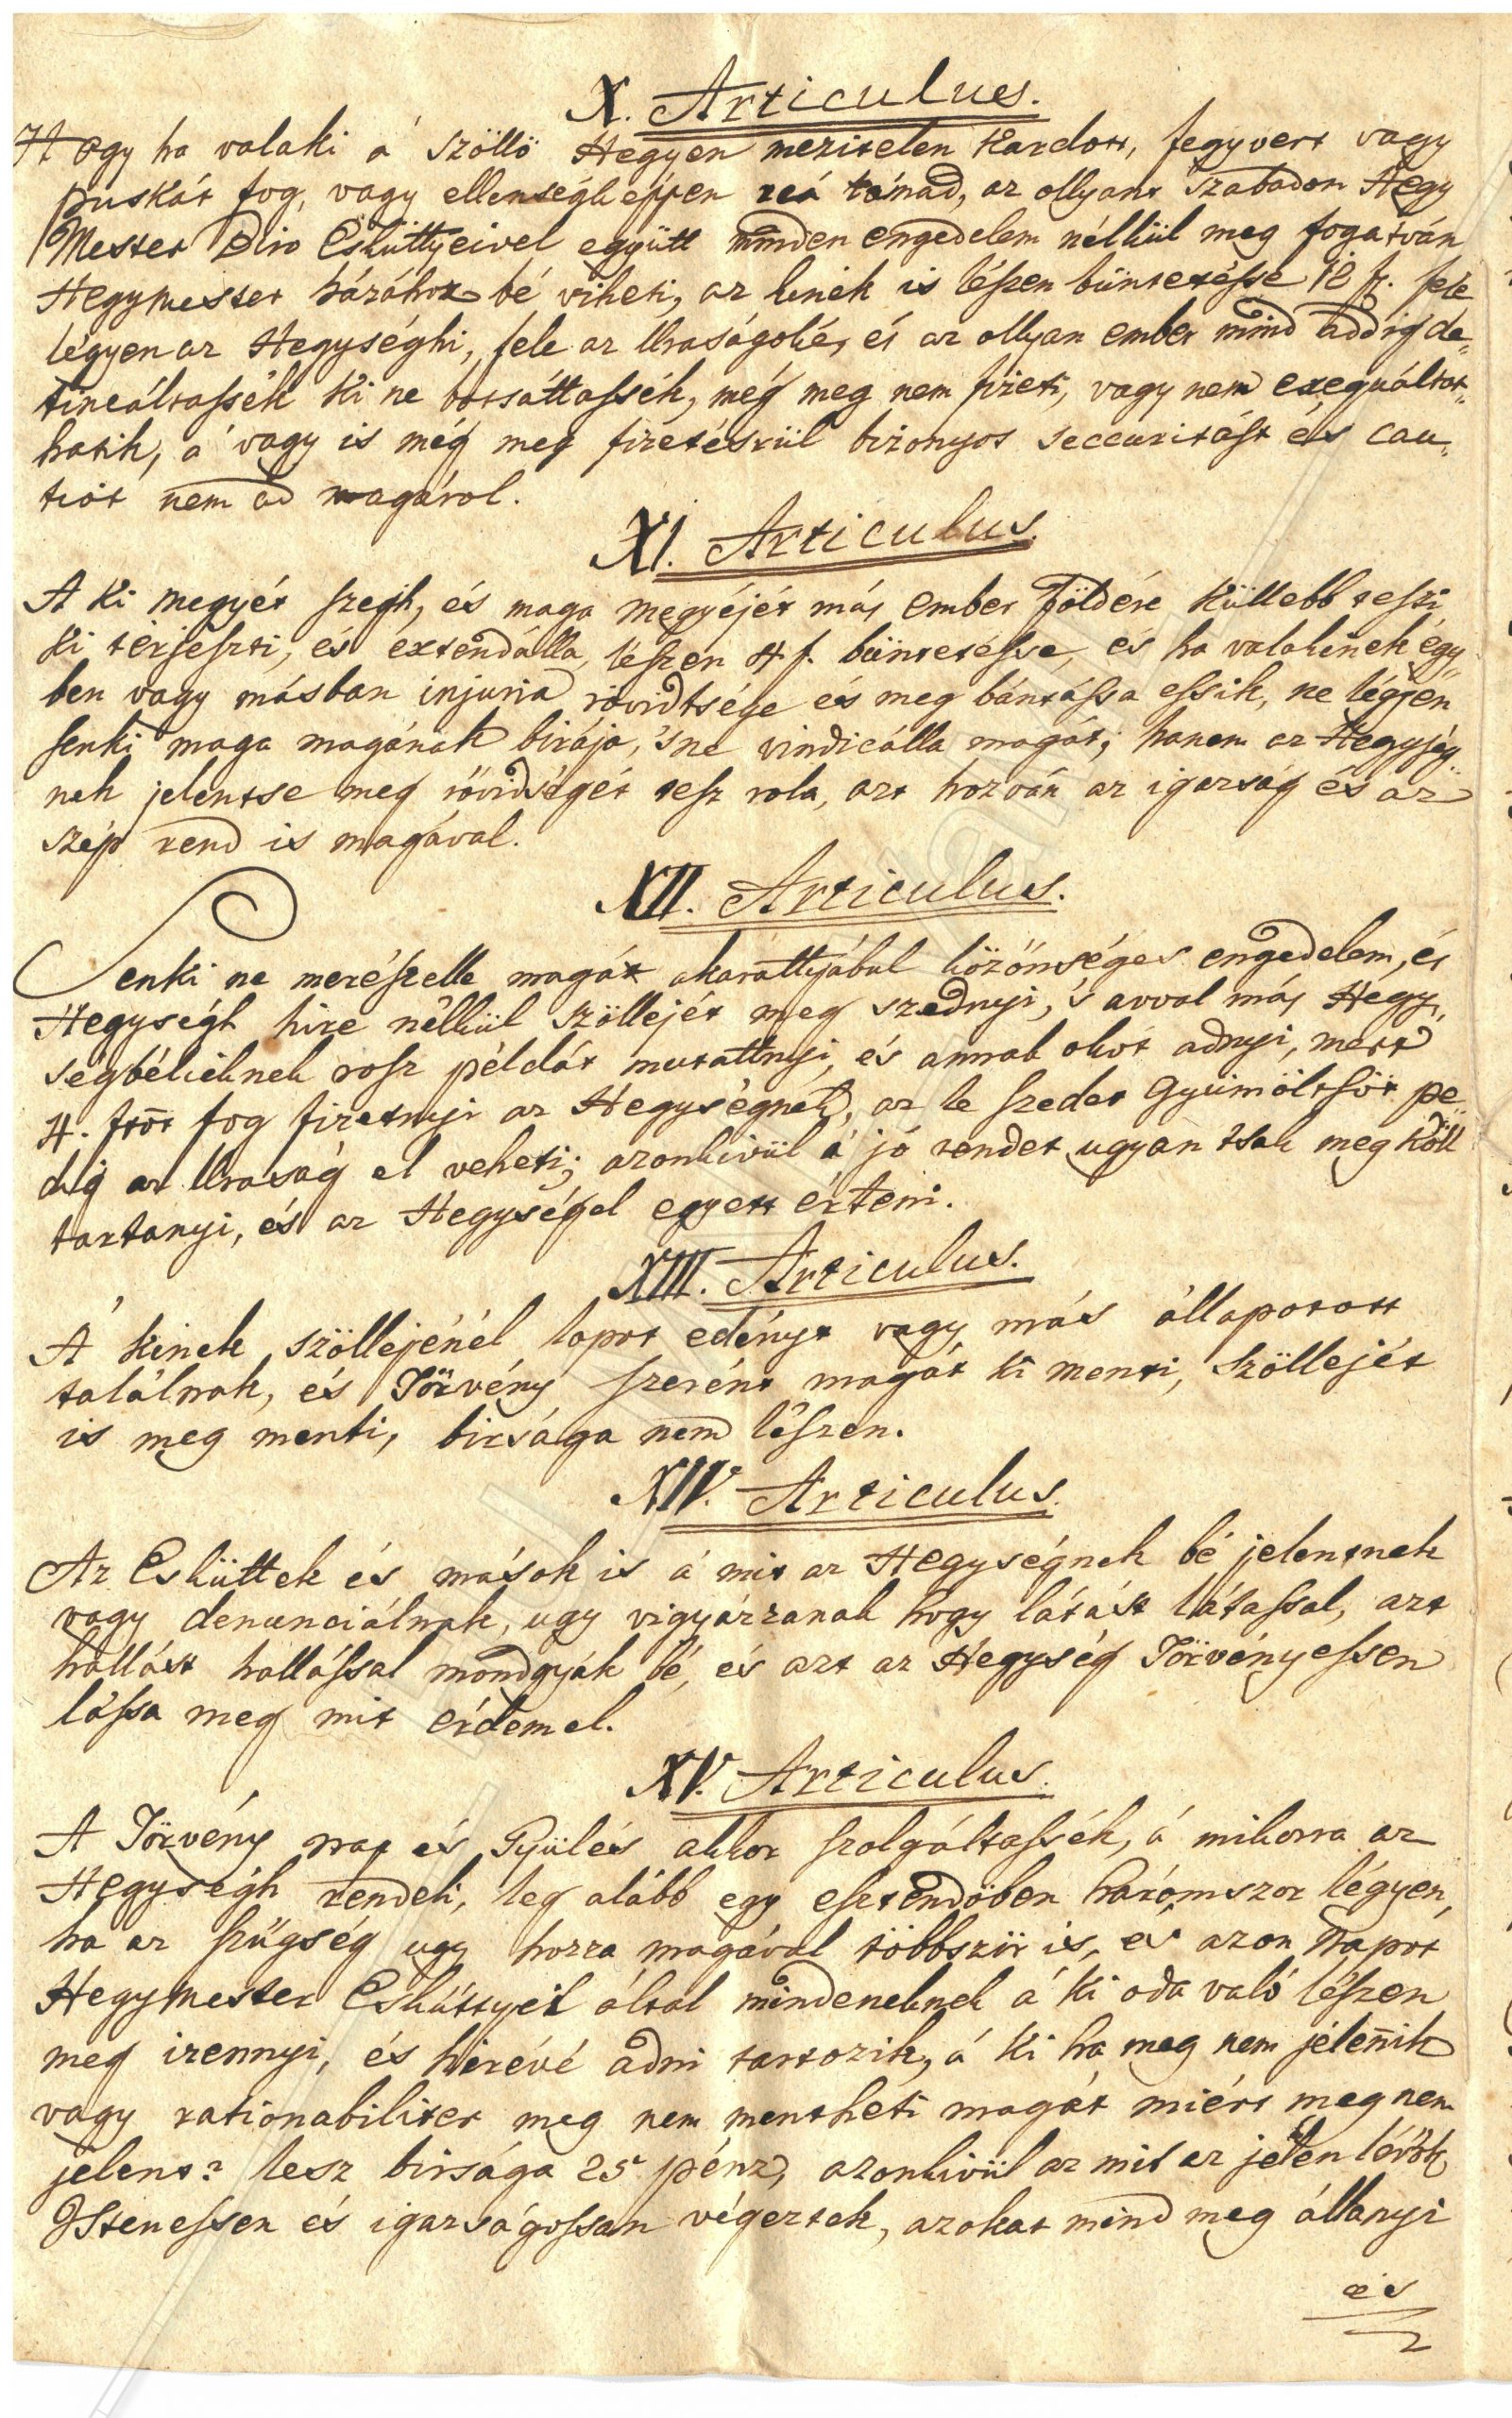 X. Articulus.
Hogy ha valaki á szöllö Hegyen mezitelen kardott, fegyvert vagy
puskát fog, vagy ellenségh eppen reá támad, az ollyant szabadon Hegy
Mester Biro Esküttyeivel együtt minden engedelem nélkül meg fogatván
Hegymester házához bé viheti, az kinek is lészen büntetésse 12 ft. fele
légyen az Hegységhi, fele az Uraságoké, és az ollyan ember mind addig de„
tineáltassék ki ne botsáttassék, még meg nem fizeti, vagy nem exequáltat„
hatik, á vagy is még meg fizetésrül bizonyos seccuritást és cau„
tiót nem ad magárol.
XI. Articulus.
A ki megyét szegh, és maga megyéjét más ember földére küllebb teszi
ki térjeszti, és extendálla, lészen 4 f. büntetésse, és ha valakinek égy„
ben vagy másban injuria rövidtsége és meg bántássa essik, ne légyen
senki maga magának birája, 's ne vindicálla magát; hanem az Hegység„
nek jelentse meg rövidségét tesz rola, azt hozván az igazság és az
szép rend is magával.
XII. Articulus.
Senki ne merészelle magát akarattyábul közönséges engedelem, és
Hegységh hire nélkül szöllejét meg szednyi, 's avval más Hegy„
ségbélieknek rosz példát mutattnyi, és annak okot adnyi, mert
4. frót fog fizetnyi az Hegységnek, az le szedet Gyümöltsöt pe„
dig az Uraság el veheti; azonkivül á jó rendet ugyan tsak meg köll
tartanyi, és az Hegységel egyett érteni.
XIII. Articulus.
A' kinek szöllejénél lopot edényt vagy más állapotott
találnak, és Törvény szerént magát ki menti, szöllejét
is meg menti, birsága nem lészen.
XIV. Articulus.
Az Esküttek és mások is á mit az Hegységnek bé jelentnek
vagy denunciálnak, ugy vigyázzanak hogy látást látassal, azt
hallást hallással mondgyák bé, és azt az Hegység Törvényessen
lássa meg mit érdemel.
XV. Articulus.
A Törvény nap és Gyülés akkor szolgáltassék, á mikorra az
Hegységh rendeli, leg alább egy esztendöben háromszor légyen,
ha az szügség ugy hozza magával többszür is, és azon Napot
Hegymester Esküttyei által mindeneknek á ki oda való lészen
meg izennyi, és hirévé adni tartozik, á ki ha meg nem jelenik
vagy rationabiliter meg nem mentheti magát miért meg nem
jelent? lesz birsága 25 pénz, azonkivül az mit az jelen lévök
Istenessen és igazságossan végeztek, azokat mind meg állanyi
és